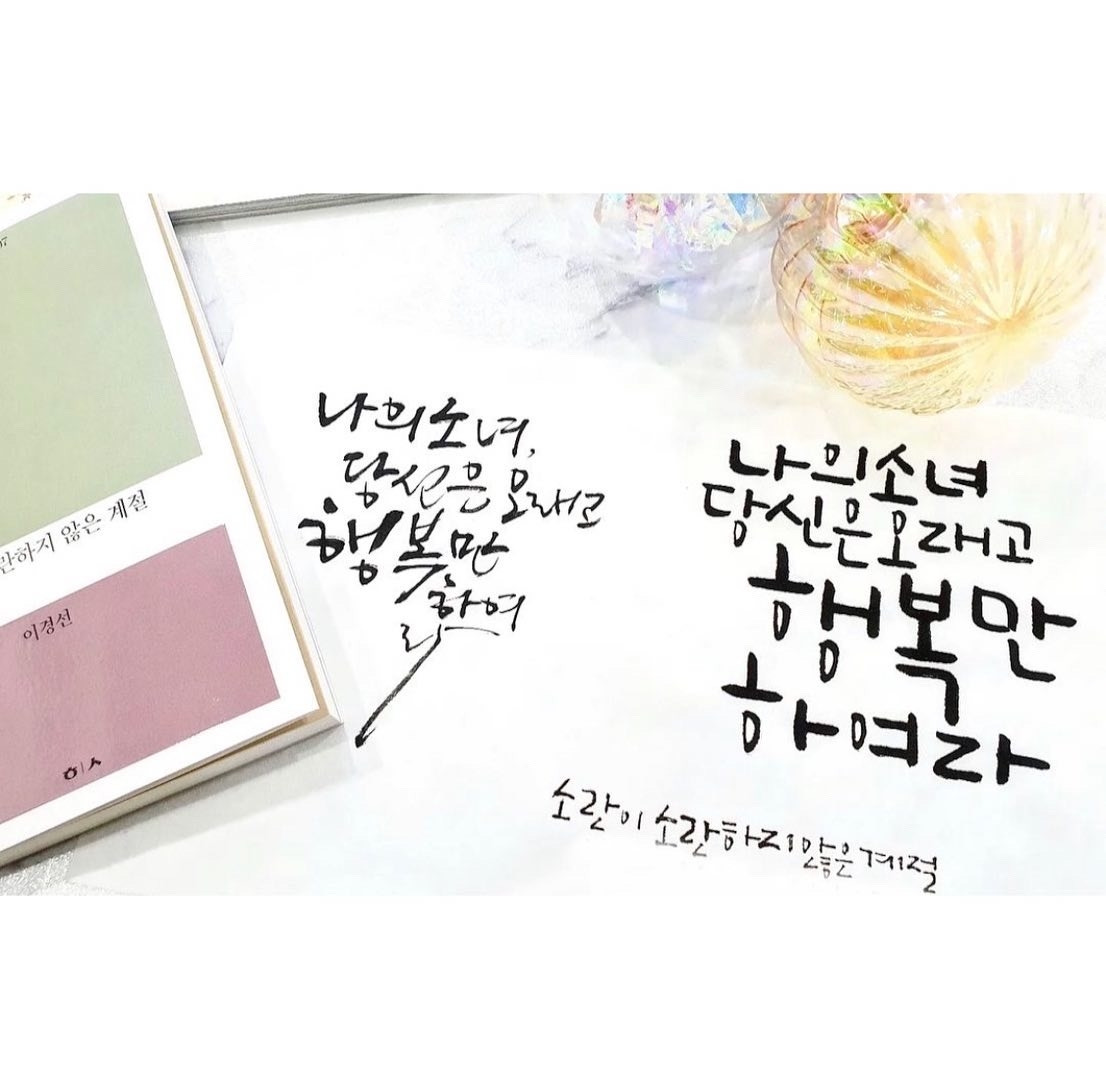 란하지 않은 계절
이경선
ㅎ|ㅅ
나의소녀,
당신은 오래고
행복만
하여
라
나의소녀
당신은오래고
행복만
하여라
소란이 소란하지않은계절